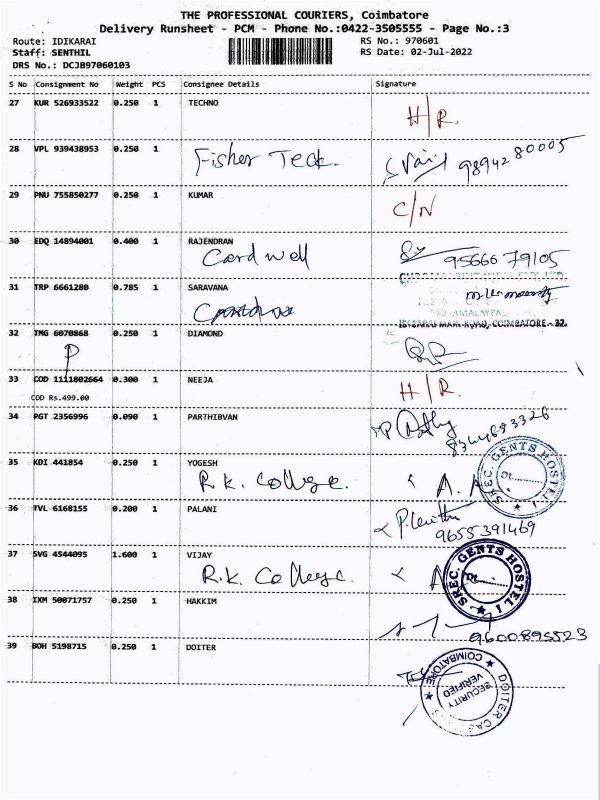 THE PROFESSIONAL COURIERS, Coimbatore
Delivery Runsheet - PCM - Phone No.:0422-3505555 - Page No.:3
Route: IDIKARAI RS No.: 970601
Staff: SENTHIL RS Date: 02-Jul-2022
DRS No.: DCJB97060103
S No Consignment No Weight PCS Consignee Details Signature
27 KUR 526933522 0.250 1 TECHNO
H/R.
28 VPL 939438953 0.250 1
Fisher Teck. 9894280005
29 PNU 755850277 0.250 1 KUMAR
C/N
30 EDQ 14894001 0.400 1 RAJENDRAN
Cardwell 9566679105
31 TRP 6661280 0.785 1 SARAVANA
IDIKARAI MAIN ROAD, COIMBATORE - 22.
32 TMG 6070868 0.250 1 DIAMOND
P
33 COD 1111802664 0.300 1 NEEJA
COD Rs.499.00 H/R.
34 PGT 2356996 0.090 1 PARTHIBVAN
35 KDI 441854 0.250 1 YOGESH
R.k. College. A.
SREC. GENTS HOSTEL I
36 TVL 6168155 0.200 1 PALANI
9655391469
37 SVG 4544095 1.600 1 VIJAY
R.k. College. A
SREC. GENTS HOSTEL I
38 IXM 50071757 0.250 1 HAKKIM
9600895523
39 BOH 5198715 0.250 1 DOITER
COIMBATORE
SECURITY
VERIFIED
DOITER